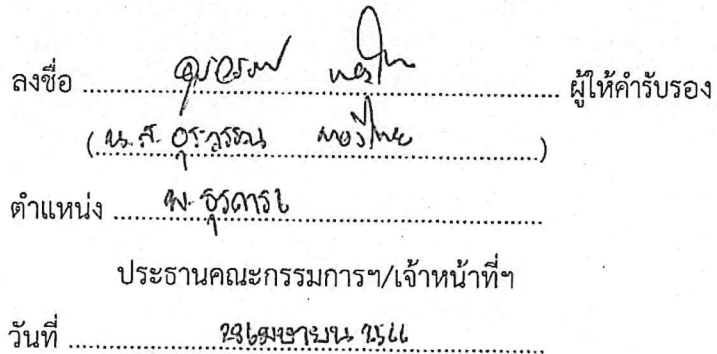 ลงชื่อ ........ ผู้ให้คำรับรอง
(น.ส. อุระวรรณ ทองไทย)
ตำแหน่ง พ.ธุรการ
ประธานคณะกรรมการฯ/เจ้าหน้าที่ฯ
วันที่ เมษายน 2566